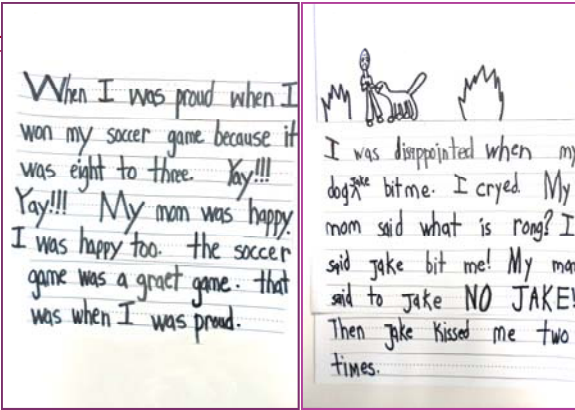 When I was proud when I
won my soccer game because it
was eight to three. Yay!!!
Yay!!! My mom was happy.
I was happy too. the soccer
game was a graet game. that
was when I was proud.
I was disappointed when my
dog jake bit me. I cryed. My
mom said what is rong? I
said jake bit me! My mom
said to jake NO JAKE!
Then jake kissed me two
times.